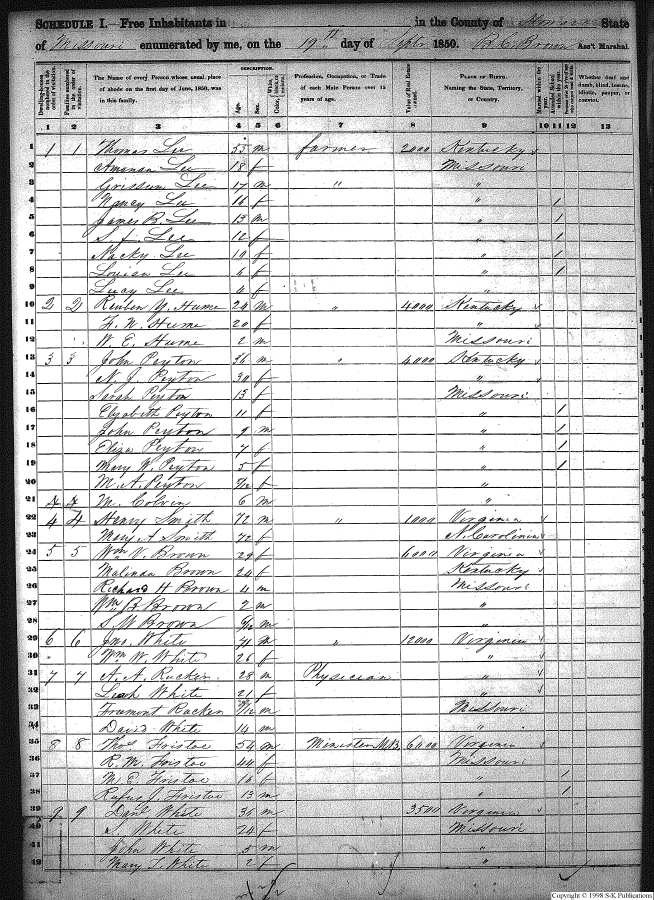 SCHEDULE I.—Free Inhabitants in in the County of State
of Missouri enumerated by me, on the 19th day of Septr 1850. Ass't Marshal.
Dwelling-houses numbered in the order of visitation.
Families numbered in the order of visitation.
The Name of every Person whose usual place of abode on the first day of June, 1850, was in this family.
DESCRIPTION.
Age.
Sex.
White, black, or mulatto.
Profession, Occupation, or Trade of each Male Person over 15 years of age.
Value of Real Estate owned.
PLACE OF BIRTH. Naming the State, Territory, or Country.
Married within the year.
Attended School within the year.
Whether deaf and dumb, blind, insane, idiotic, pauper, or convict.
1 2 3 4 5 6 7 8 9 10 11 12 13
1 1 1 Thomas Lee 53 m farmer 2000 Kentucky
2 Amanda Lee 18 f Missouri
3 Grissum Lee 17 m " "
4 Nancy Lee 16 f " 1
5 James B. Lee 13 m " 1
6 S. J. Lee 12 f " 1
7 Lee 10 f " 1
8 Louisa Lee 6 f " 1
9 Lucy Lee 4 f "
10 2 2 Reuben Y. Hume 24 m " 4000 Kentucky
11 Hume 20 f "
12 W. E. Hume 2 m Missouri
13 3 3 John Peyton 36 m " 4000 Kentucky
14 N. J. Peyton 30 f "
15 Sarah Peyton 13 f Missouri
16 Elizabeth Peyton 11 f " 1
17 John Peyton 9 m " 1
18 Eliza Peyton 7 f " 1
19 Mary W. Peyton 5 f " 1
20 M. A. Peyton f "
21 M. Colvin 6 m "
22 4 4 Henry Smith 72 m " 1000 Virginia
23 Mary A Smith 72 f N. Carolina
24 5 5 Wm V. Brown 29 f 6000 Virginia
25 Malinda Brown 24 f Kentucky
26 Richard H Brown 4 m Missouri
27 Wm B Brown 2 m "
28 S W Brown m "
29 6 6 Jas. White m " 12000 Virginia
30 Wm W. White 26 f "
31 7 7 A. A. Rucker 28 m Physician "
32 Leah White 21 f "
33 Fremont Rucker m Missouri
34 David White 14 m "
35 8 8 Thos Fristoe 54 m Minister 6000 Virginia
36 R. M. Fristoe 44 f Missouri
37 M. E. Fristoe 16 f " 1
38 Rufus J. Fristoe 13 m " 1
39 9 9 Danl White 35 m 3500 Virginia
40 S. White 24 f Missouri
41 John White 5 m "
42 Mary T. White 2 f "
Copyright © 1998 S-K Publications